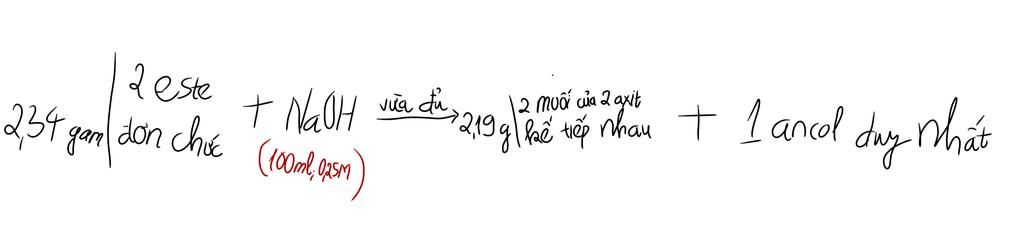 2,34 gam
2 este
đơn chức
+ NaOH
(100ml, 0,25M)
vừa đủ
2,19g
2 muối của 2 axit
kế tiếp nhau
+ 1 ancol duy nhất